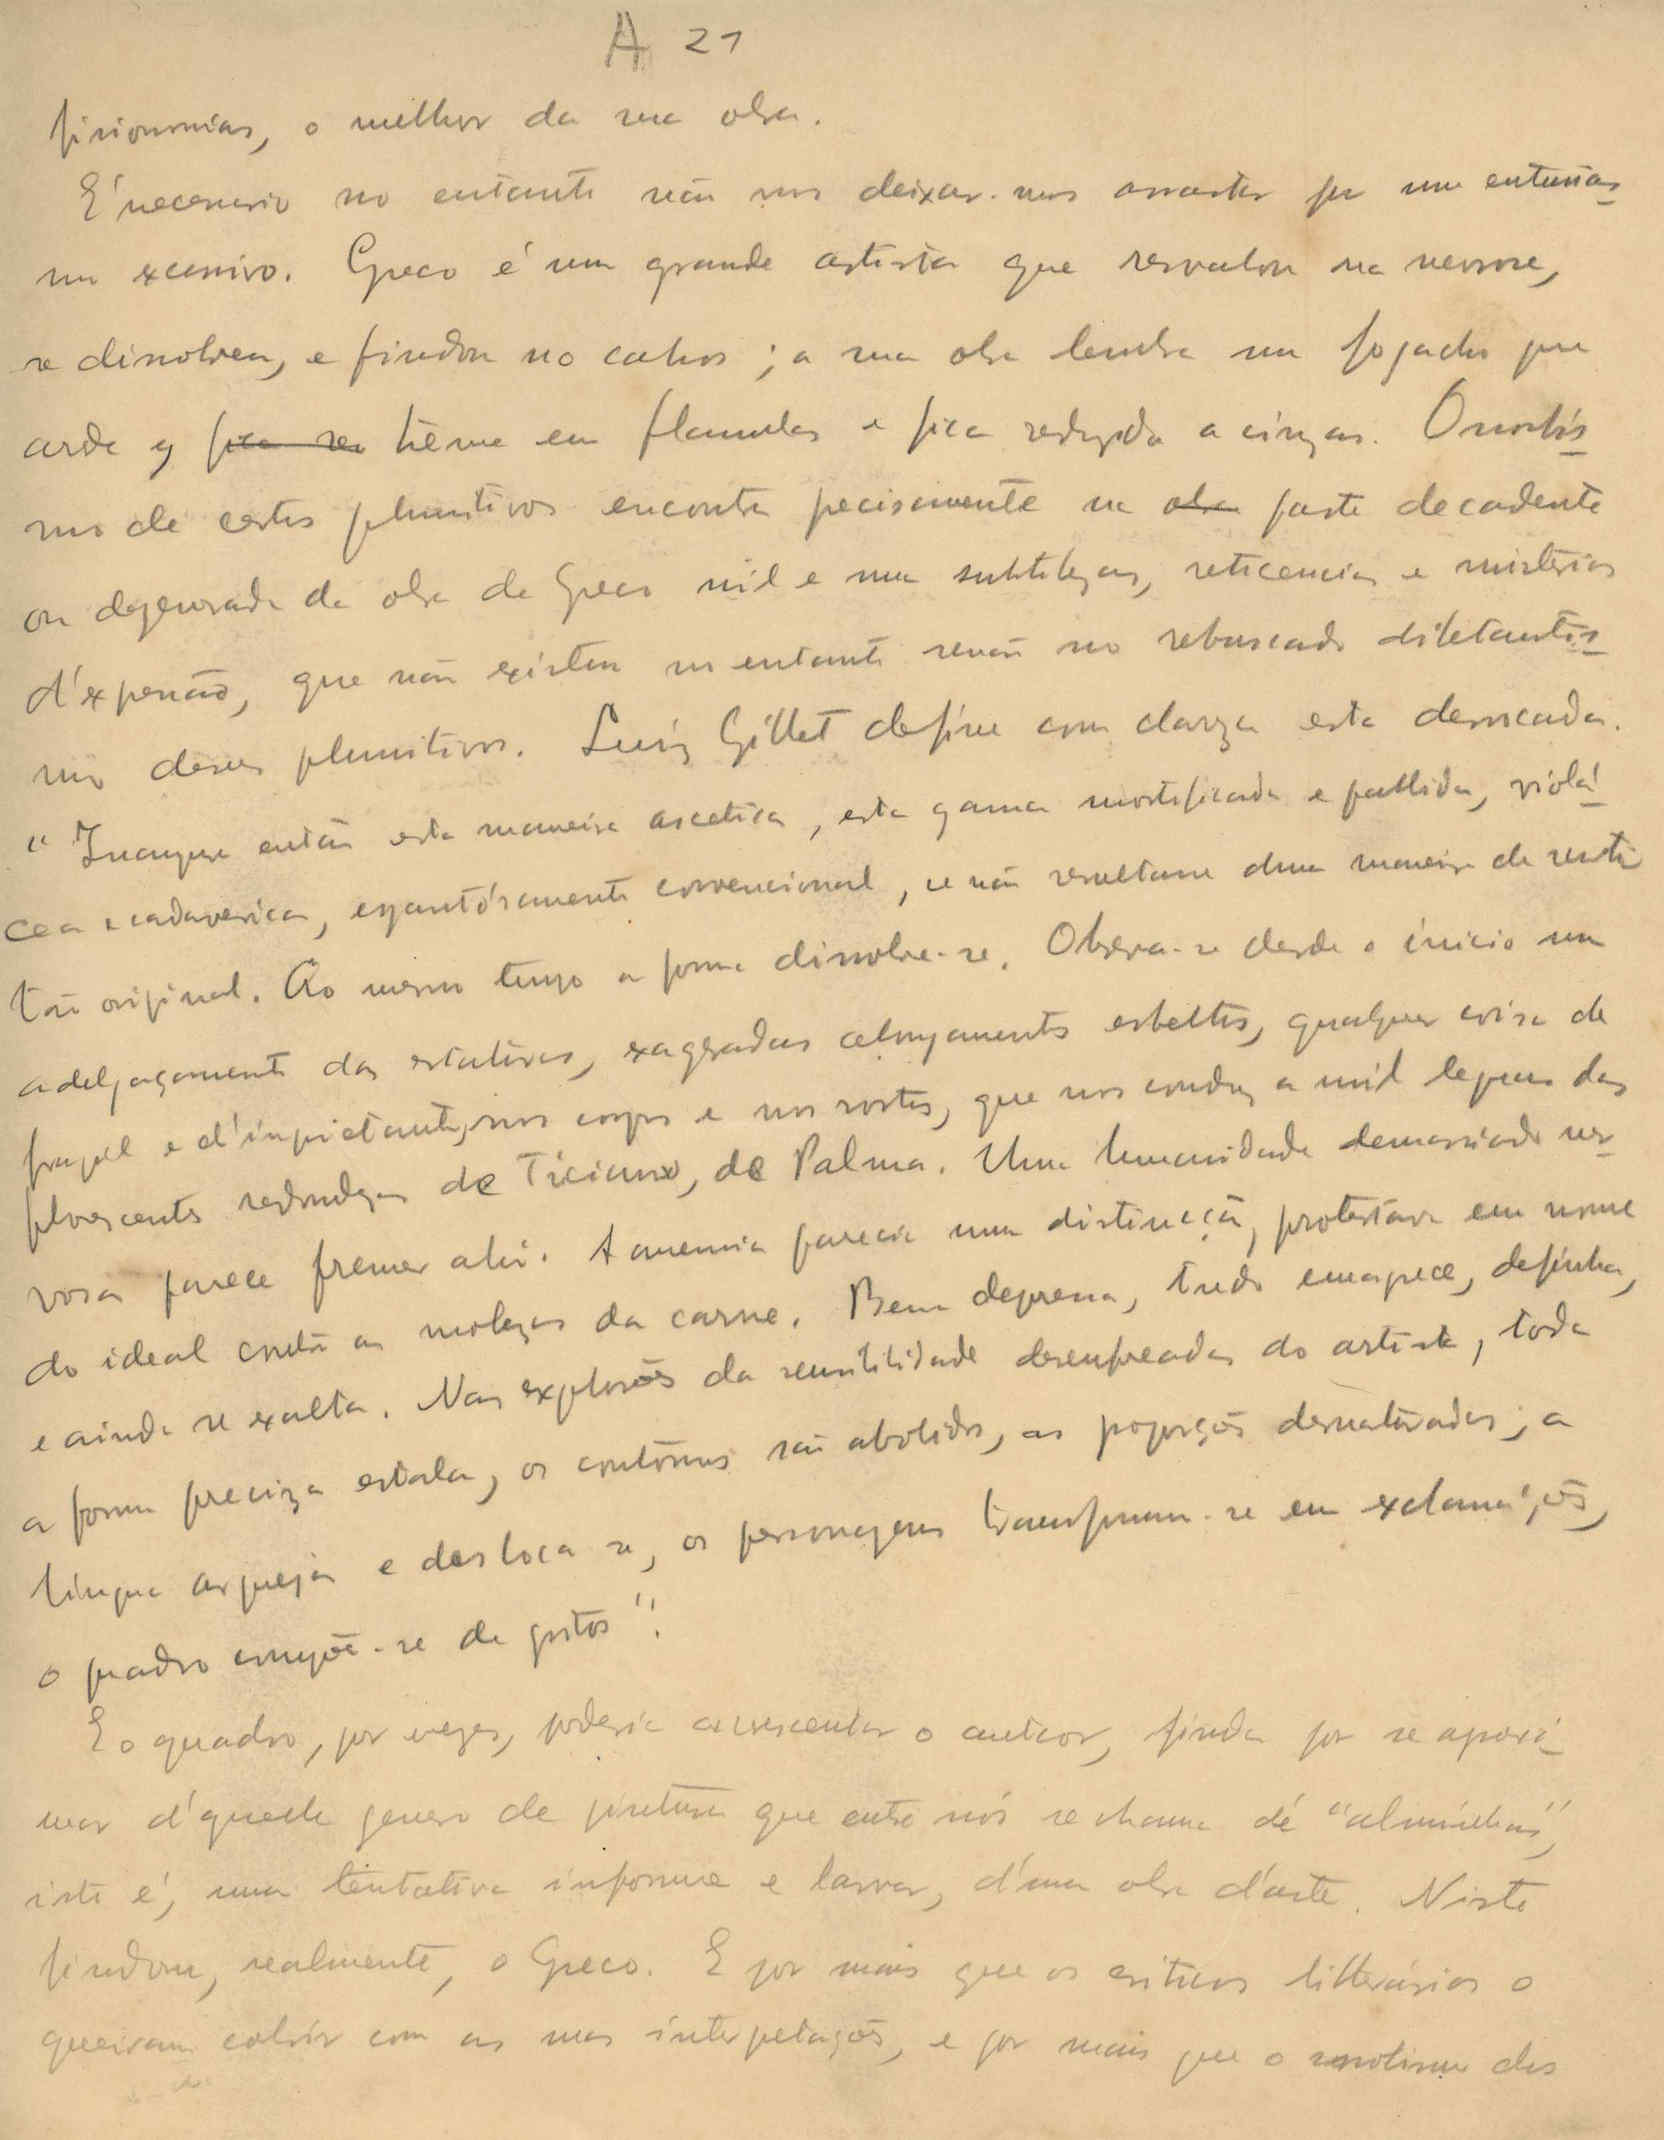 A 21
fisionomias, o melhor da sua obra.
É necessario no entanto não nos deixar-nos arrastar por um entusias-
mo excessivo. Greco é um grande artista que resvalou na nevrose,
se dissolveu, e findou no cahos; a sua obra lembra um fogacho que
arde e fica re treme em flamulas e fica reduzida a cinzas. O snobis-
mo de certos plumitivos encontra precisamente na obra parte decadente
ou degenerada da obra de Greco mil e uma subtilezas, reticencias e misterios
d'expressão, que não existem no entanto senão no rebuscado diletantis-
mo desses plumitivos. Luiz Gillet define com clareza esta derrocada.
" então esta maneira ascetica, esta gama mortificada e pallida, violá-
cea e cadaverica, espantósamente convencional, se não resultasse duma maneira de sentir
tão original. Ao mesmo tempo a forma dissolve-se. Observa-se desde o inicio um
adelgaçamento das estaturas, exageradas alongamentos esbeltos, qualquer coisa de
fragil e d'inquietante, nos corpos e nos rostos, que nos conduz a mil leguas das
florescentes redondezas de Ticiano, de Palma. Uma humanidade demasiado ner-
vosa parece fremer alí. A anemia parecia uma distincção, protestava em nome
do ideal contra as molezas da carne. Bem depressa, tudo emagrece, definha,
e ainda se exalta. Nas explosões da sensibilidade desenfreada do artista, toda
a forma preciza estala, os contornos são abolidos, as proporções desnaturadas; a
lingua arqueja e desloca se, os personagens transformam-se em exclamações,
o quadro compõe-se de gritos".
E o quadro, por vezes, poderia acrescentar o auctor, finda por se aproxi-
mar d'aquele genero de pintura que entre nós se chama dé "alminhas",
isto é, uma tentativa informe e larvar, d'uma obra d'arte. Nisto
findou, realmente, o Greco. E por mais que os criticos litterários o
queiram cobrir com as suas interpetações, e por mais que o snobismo dos